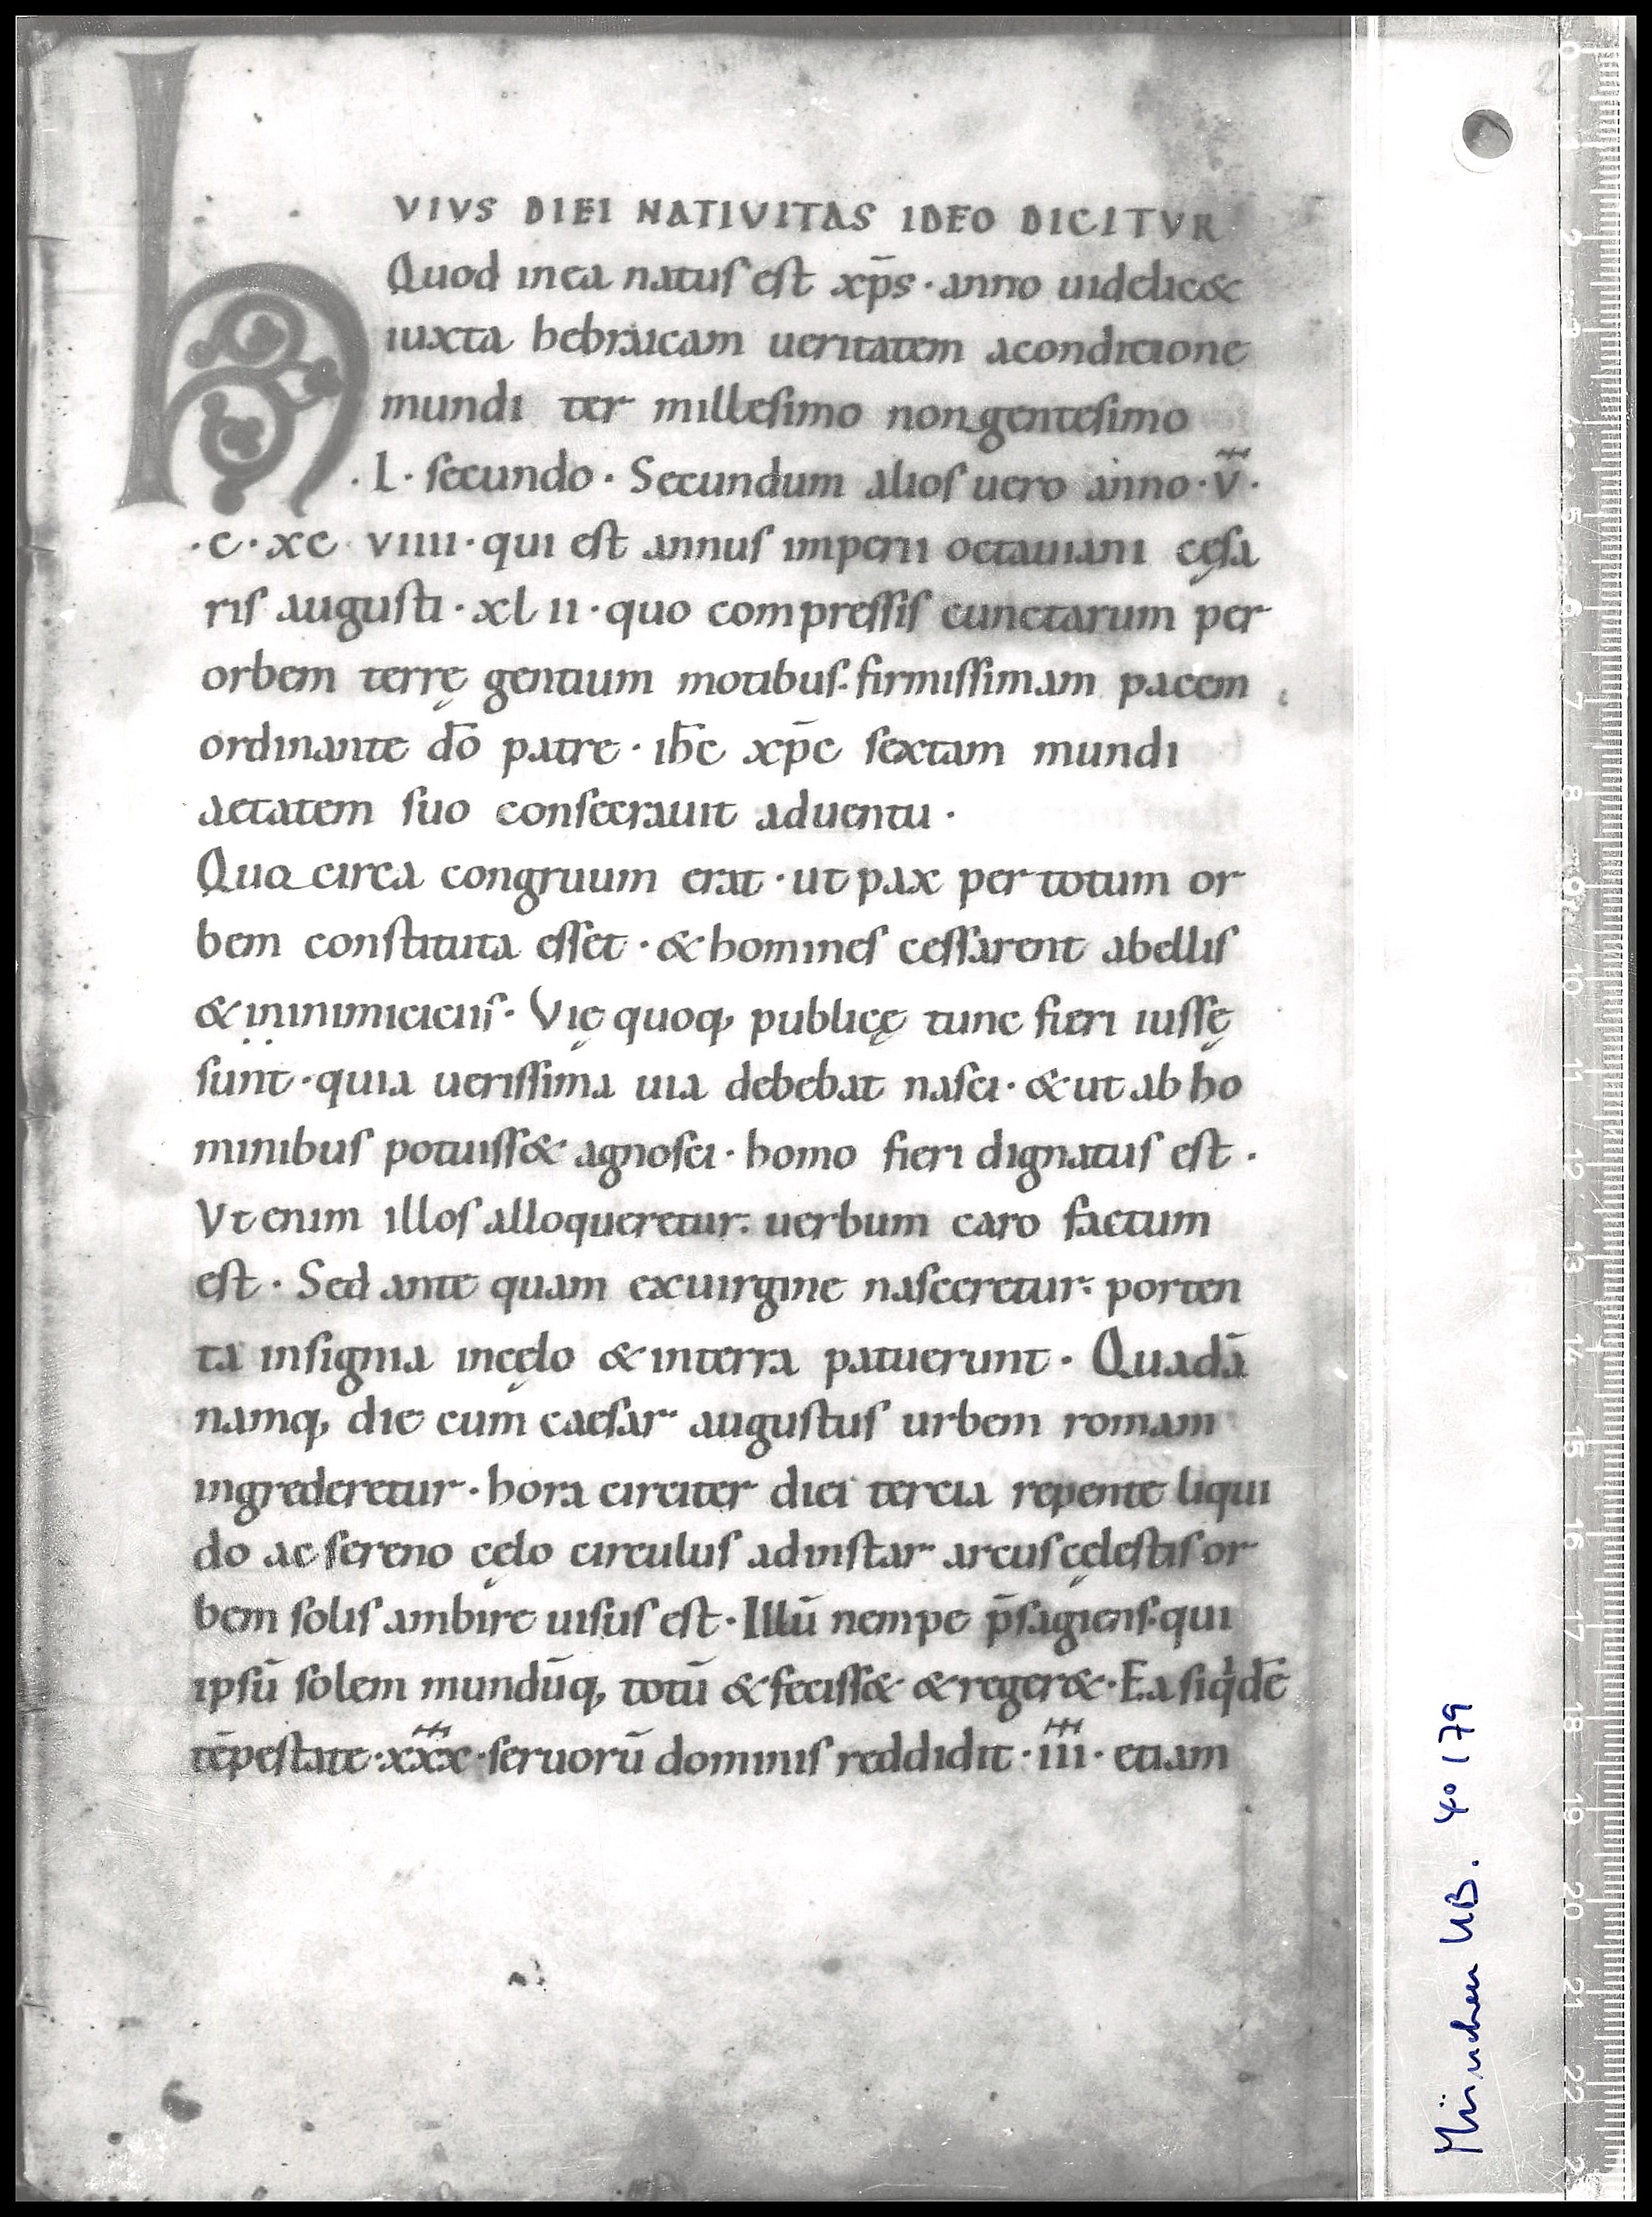 HVIVS DIEI NATIVITAS IDEO DICITVR
Quod inea natuſ eſt xp̄s · anno uidelic&
iuxta hebraicam ueritatem acondicione
mundi ter milleſimo nongenteſimo
· L · ſecundo · Secundum alioſ uero anno · v̄ ·
· c · xc viiii · qui eſt annuſ imperii octauiani cęſa
riſ auguſti · xl ii · quo compreſſiſ cunctarum per
orbem terrę gentium motibuſ· firmiſſimam pacem
ordinante dō patre · ih̄c xp̄c ſextam mundi
aetatem ſuo conſecrauit aduentu ·
Quo circa congruum erat · ut pax per totum or
bem conſtituta eſſet · & homineſ ceſſarent abelliſ
& ininimiciciiſ · Vię quoq, publicę tunc fieri iuſſę
ſunt · quia ueriſſima uia debebat naſci · & ut ab ho
minibuſ potuiſſ& agnoſci · homo fieri dignatuſ eſt ·
Vt enim illoſ alloqueretur: uerbum caro factum
eſt · Sed ante quam exuirgine naſceretur: porten
ta inſignia incęlo & interra patuerunt · Quadā
namq, die cum caeſar auguſtuſ urbem romam
ingrederetur · hora circiter diei tercia repente liqui
do ac ſereno cęlo circuluſ adinſtar arcuſ cęleſtiſ or
bem ſoliſ ambire uiſuſ eſt · Illū nempe p̄ſagienſ· qui
ipſū ſolem mundūq, totū & feciſſ& & reger& · Ea ſiqͥdē
tēpeſtate · xxx · ſeruorū dominiſ reddidit · iii · etiam
München UB. 4° 179
0 1 2 3 4 5 6 7 8 9 10 11 12 13 14 15 16 17 18 19 20 21 22